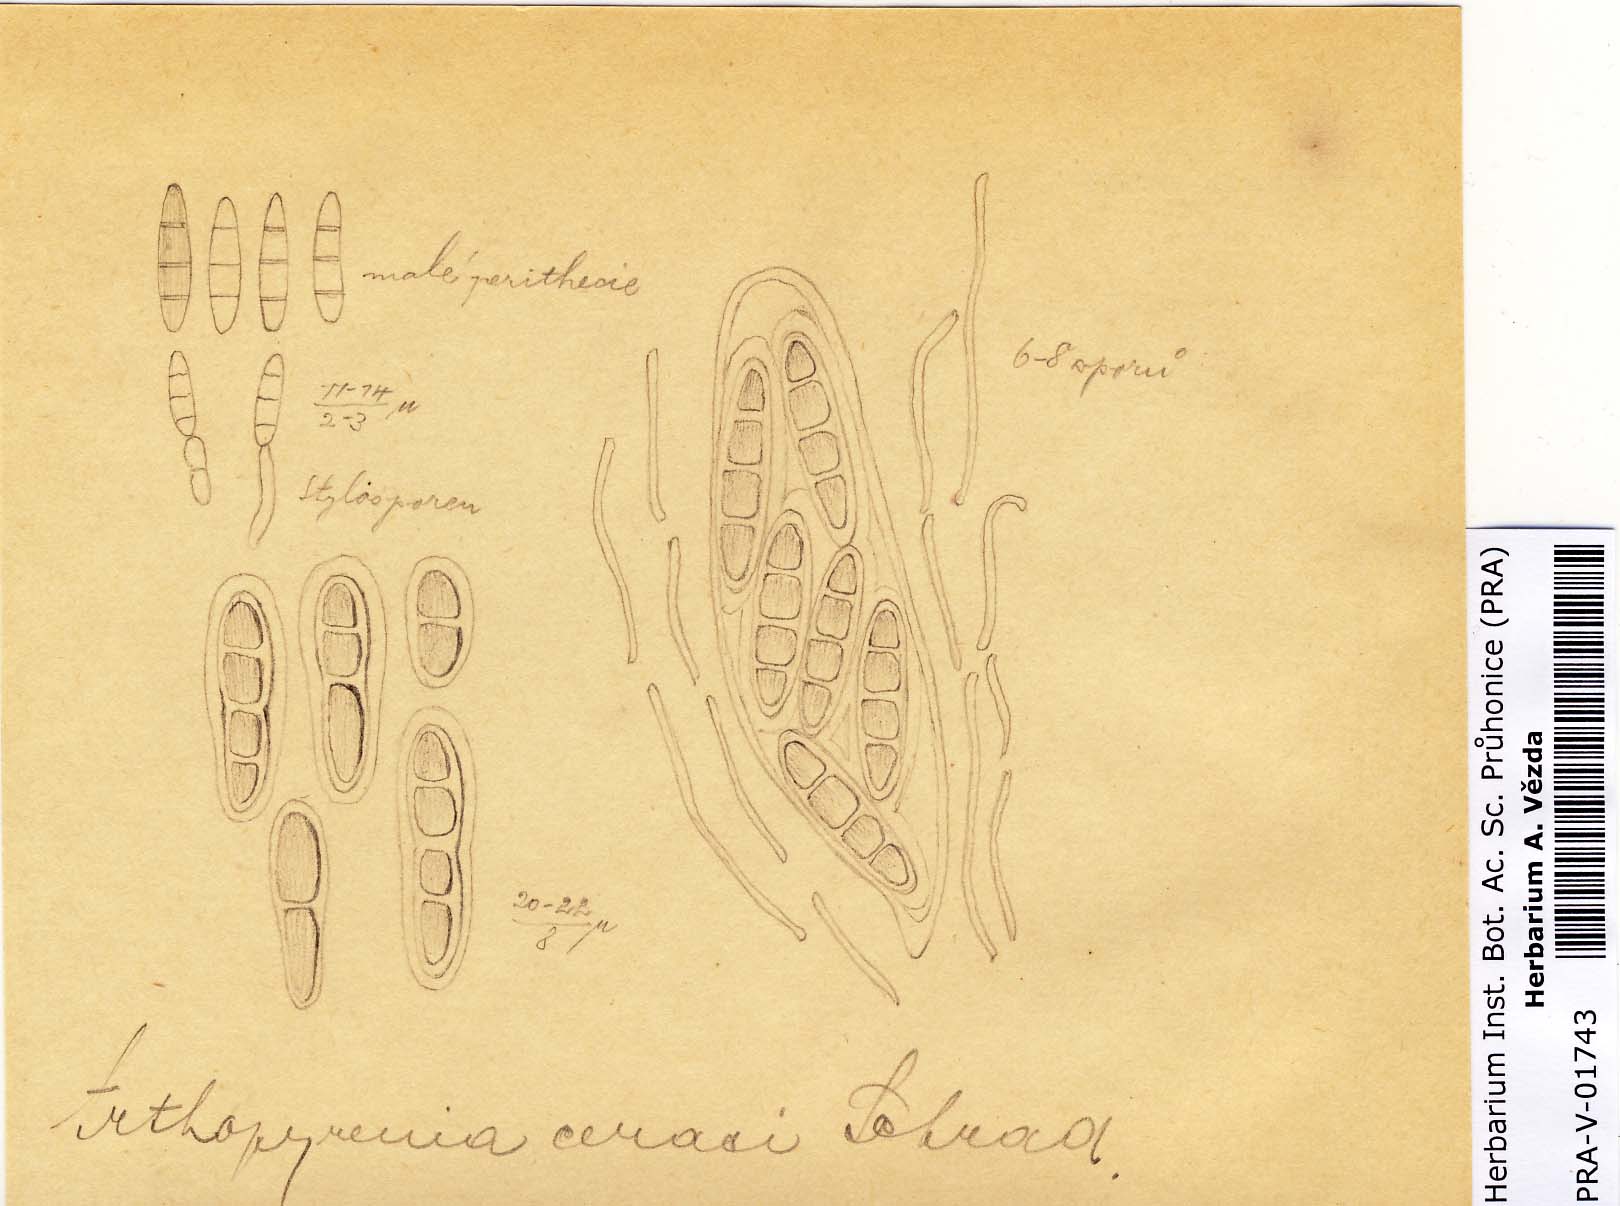 malé perithecie
11-14
2-3 µ
Stylosporen
6-8 sporů
20-22
8 µ
Arthopyrenia cerasi Schrad.
Herbarium Inst. Bot. Ac. Sc. Průhonice (PRA)
Herbarium A. Vězda
PRA-V-01743